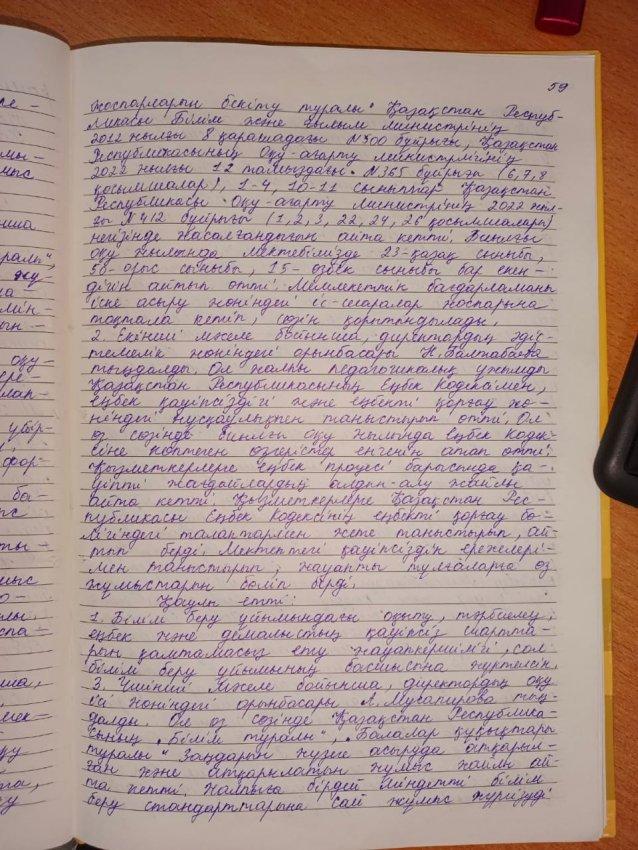 59
жоспарларын бекіту туралы" Қазақстан Респуб-
ликасы Білім және ғылым министрінің
2012 жылғы 8 қарашадағы №500 бұйрығы, Қазақстан
Республикасының Оқу-ағарту министрлігінің
2022 жылғы 12 тамыздағы №365 бұйрығы (6,7,8
қосымшалар), 1-4, 10-11 сыныптар Қазақстан
Республикасы Оқу-ағарту министрінің 2022 жыл-
ғы №412 бұйрығы (1, 2, 3, 22, 24, 26 қосымшалары)
негізінде жасалғандығын айта кетті. Биылғы
оқу жылында мектебімізде 23-қазақ сыныбы,
50-орыс сыныбы, 15-өзбек сыныбы бар екен-
дігін айтып өтті. Мемлекеттік бағдарламаны
іске асыру жөніндегі іс-шаралар жоспарына
тоқтала кетіп, сөзін қорытындылады.
2. Екінші мәселе бойынша, директордың әдіс-
темелік жөніндегі орынбасары Н.Балтабаева
тыңдалды. Ол жалпы педагогикалық ұжымды
Қазақстан Республикасының Еңбек Кодексімен,
еңбек қауіпсіздігі және еңбекті қорғау жө-
ніндегі нұсқаулықпен таныстырып өтті. Ол
өз сөзінде биылғы оқу жылында Еңбек Кодек-
сіне көптеген өзгерістер енгенін атап өтті.
Қызметкерлерге еңбек процесі барысында қа-
уіпті жағдайлардың алдын-алу жайлы
айта кетті. Қызметкерлерге Қазақстан Рес-
публикасы Еңбек Кодексінің еңбекті қорғау бө-
лігіндегі талаптармен жете таныстырып, ай-
тып берді. Мектептегі қауіпсіздік ережелері-
мен таныстырып, жауапты тұлғаларға өз
жұмыстарын бөліп берді.
Қаулы етті:
1. Білім беру ұйымындағы оқыту, тәрбиелеу,
еңбек және демалыстың қауіпсіз шартта-
рын қамтамасыз ету жауапкершілігі, сол
білім беру ұйымының басшысына жүктелсін.
3. Үшінші мәселе бойынша, директордың оқу
ісі жөніндегі орынбасары Л.Мусапирова тың-
далды. Ол өз сөзінде Қазақстан Республика-
сының „Білім туралы", „Балалар құқықтары
туралы" Заңдарын жүзеге асыруда атқарыл-
ған және атқарылатын жұмыс жайлы ай-
та кетті. Жалпыға бірдей міндетті білім
беру стандарттарына сай жұмыс жүргізуді